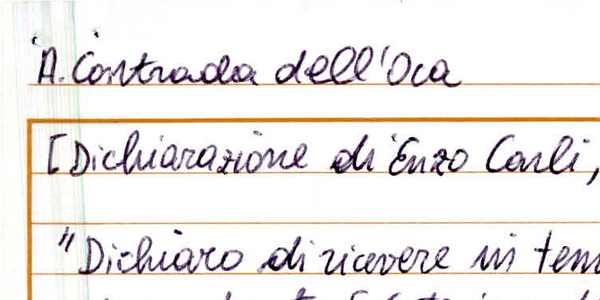 A. Contrada dell'Oca
[Dichiarazione di Enzo Carli,
"Dichiaro di ricevere in tem